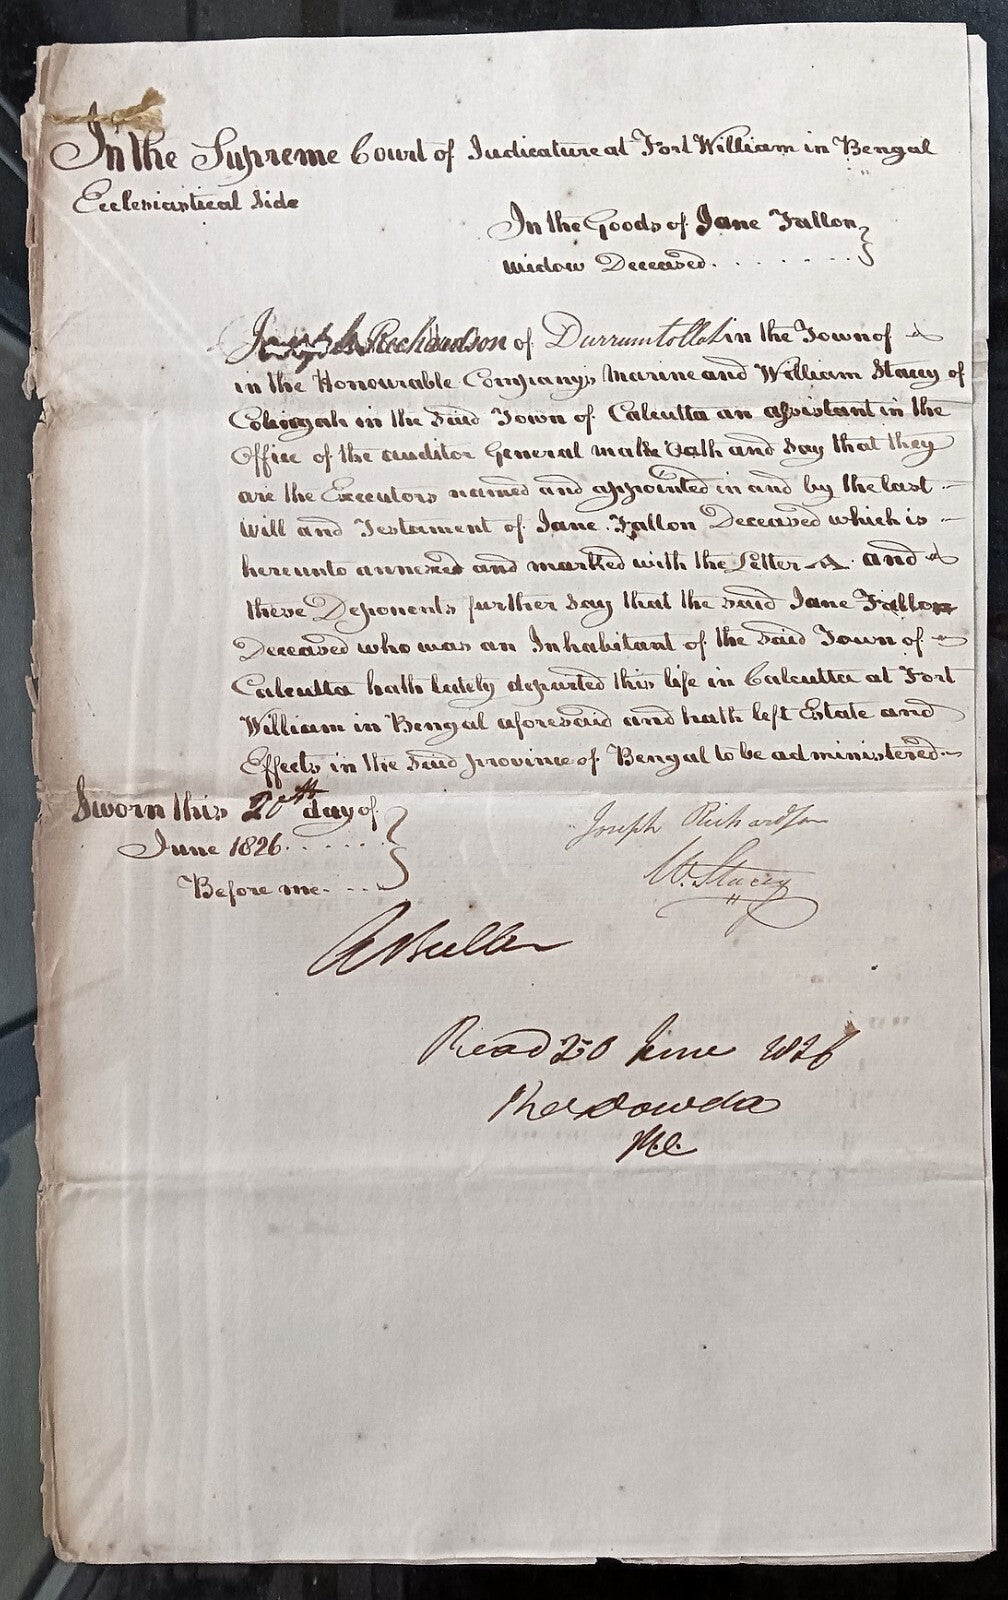 In the Supreme Court of Judicature at Fort William in Bengal
Ecclesiastical Side
In the Goods of Jane Fallon
Widow Deceased.
Joseph Richardson of Durrumtollah in the Town of
in the Honourable Company's Marine and William Stacey of
Colingah in the Said Town of Calcutta an assistant in the
Office of the auditor General make Oath and Say that they
are the Executors named and appointed in and by the last
Will and Testament of Jane Fallon Deceased which is
hereunto annexed and marked with the Letter A. and
these Deponents further Say that the said Jane Fallon
Deceased who was an Inhabitant of the Said Town of
Calcutta hath lately departed this life in Calcutta at Fort
William in Bengal aforesaid and hath left Estate and
Effects in the Said province of Bengal to be administered
Sworn this 20th day of
June 1826
Before me
Joseph Richardson
W. Stacey
A Buller
Read 20 June 1826